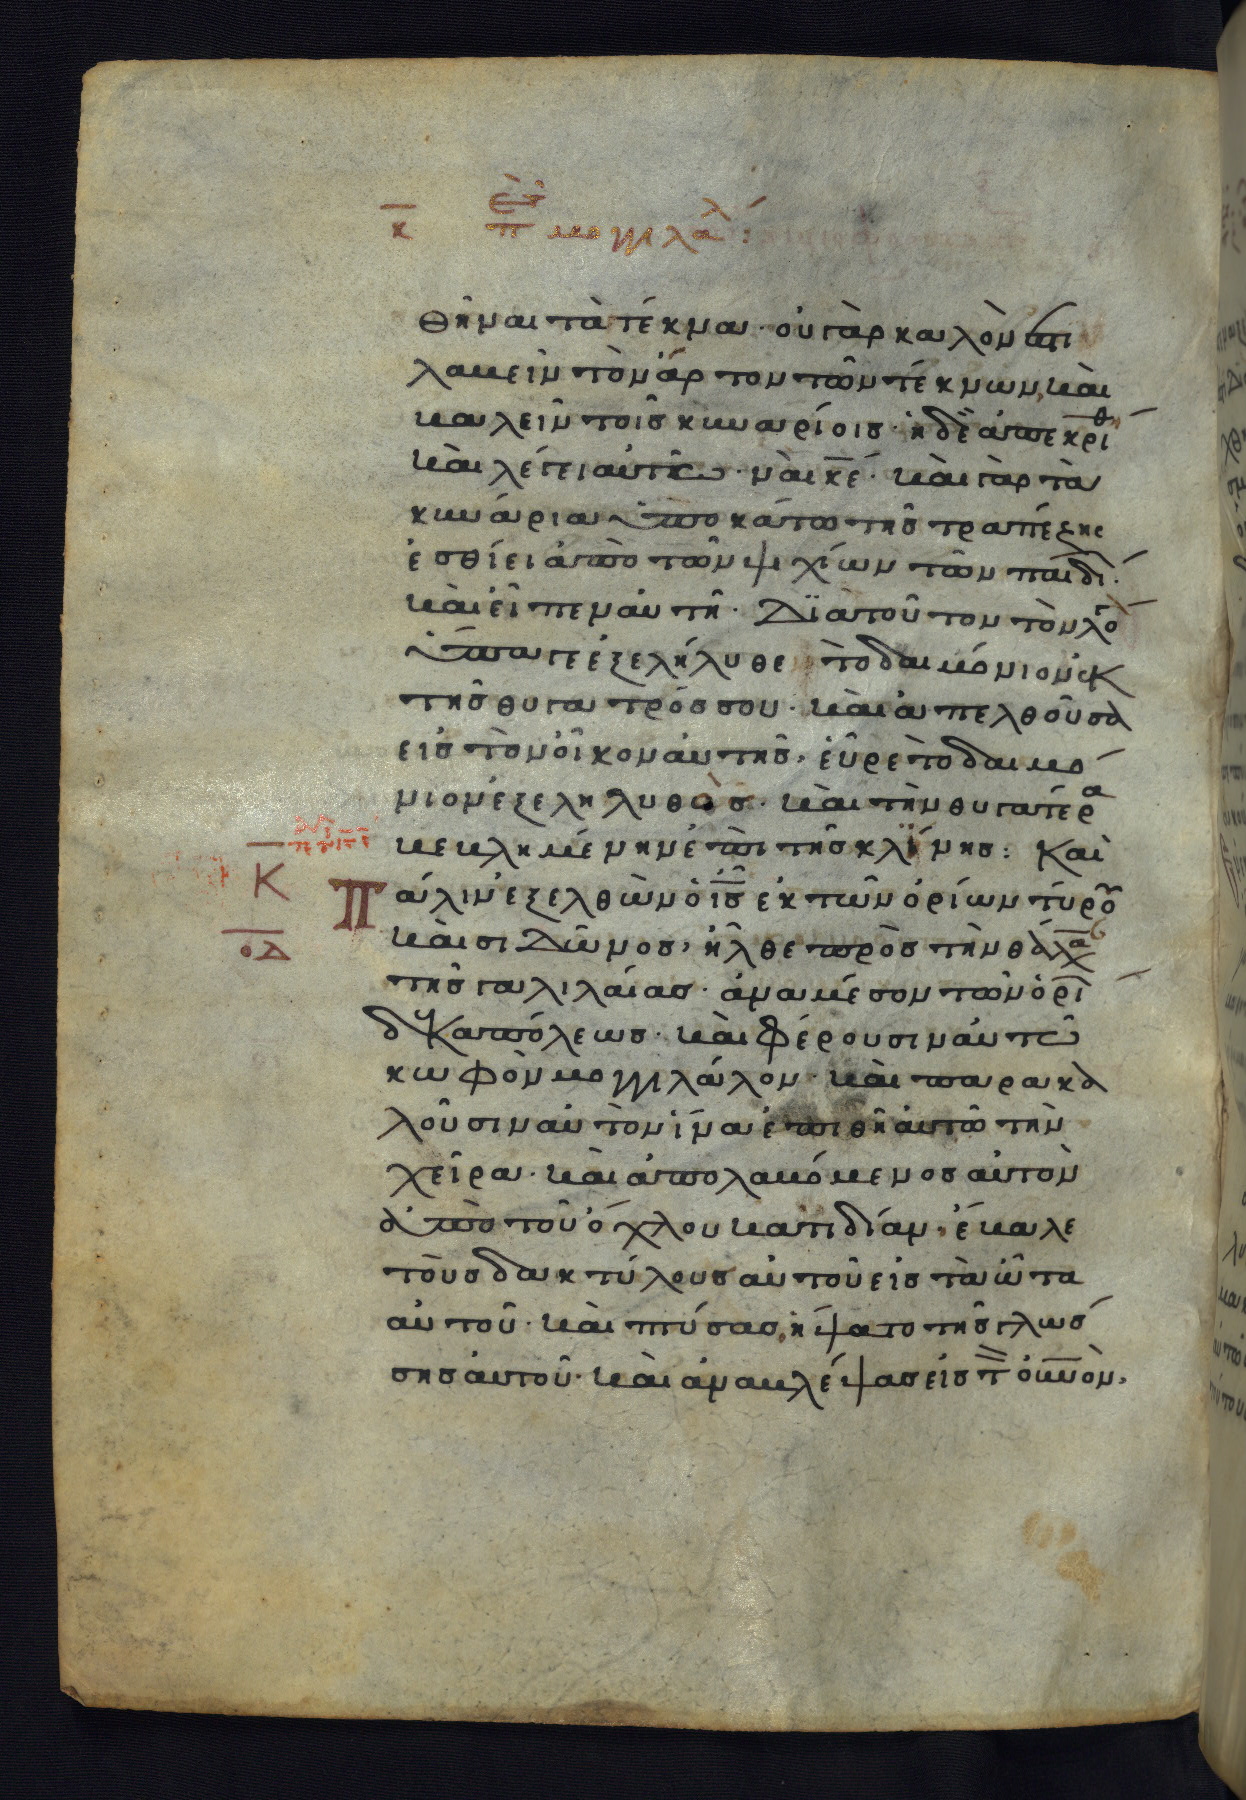 κ περὶ μογγιλάλ:
θῆναι τὰ τέκνα· οὐ γὰρ καλὸν ἐστι
λαβεῖν τὸν ἄρτον τῶν τέκνων, καὶ
βαλεῖν τοῖς κυναρίοις· ἡ δὲ ἀπεκρίθ
καὶ λέγει αὐτῶ· ναὶ κε· καὶ γὰρ τὰ
κυνάρια ὑποκάτω τῆς τραπέζης
ἐσθίει ἀπὸ τῶν ψιχίων τῶν παιδί·
καὶ εἶπεν αὐτῆ· Διὰ τοῦτον τὸν λο
ὕπαγε ἐξελήλυθε τὸ δαιμόνιον ἐκ
τῆς θυγατρός σου· καὶ ἀπελθοῦσα
εἰς τὸν οἶκον αὐτῆς, εὗρε τὸ δαιμό
νιον ἐξεληλυθὸς· καὶ τὴν θυγατέρα
βεβλημένην ἐπι τῆς κλίνης: Καὶ
Κ
Πάλιν ἐξελθὼν ὁ ις ἐκ τῶν ὁρίων τύρου
οδ
καὶ σιδῶνος, ἦλθε πρὸς τὴν θάλα
τῆς γαλιλαίας· ἀναμέσον τῶν ὁρί
δεκαπόλεως· καὶ φέρουσιν αὐτῶ
κωφὸν μογγιλάλον· καὶ παρακα
λοῦσιν αὐτὸν ἵνα ἐπιθῆ αὐτῶ τὴν
χεῖρα· καὶ ἀπολαβόμενος αὐτὸν
ἀπὸ τοῦ ὄχλου κατιδίαν, ἔβαλε
τοὺς δακτύλους αὐτοῦ εἰς τὰ ὦτα
αὐτοῦ· καὶ πτύσας, ἥψατο τῆς γλώσ
σης αὐτοῦ· καὶ ἀναβλέψας εἰς τ ουνὸν,